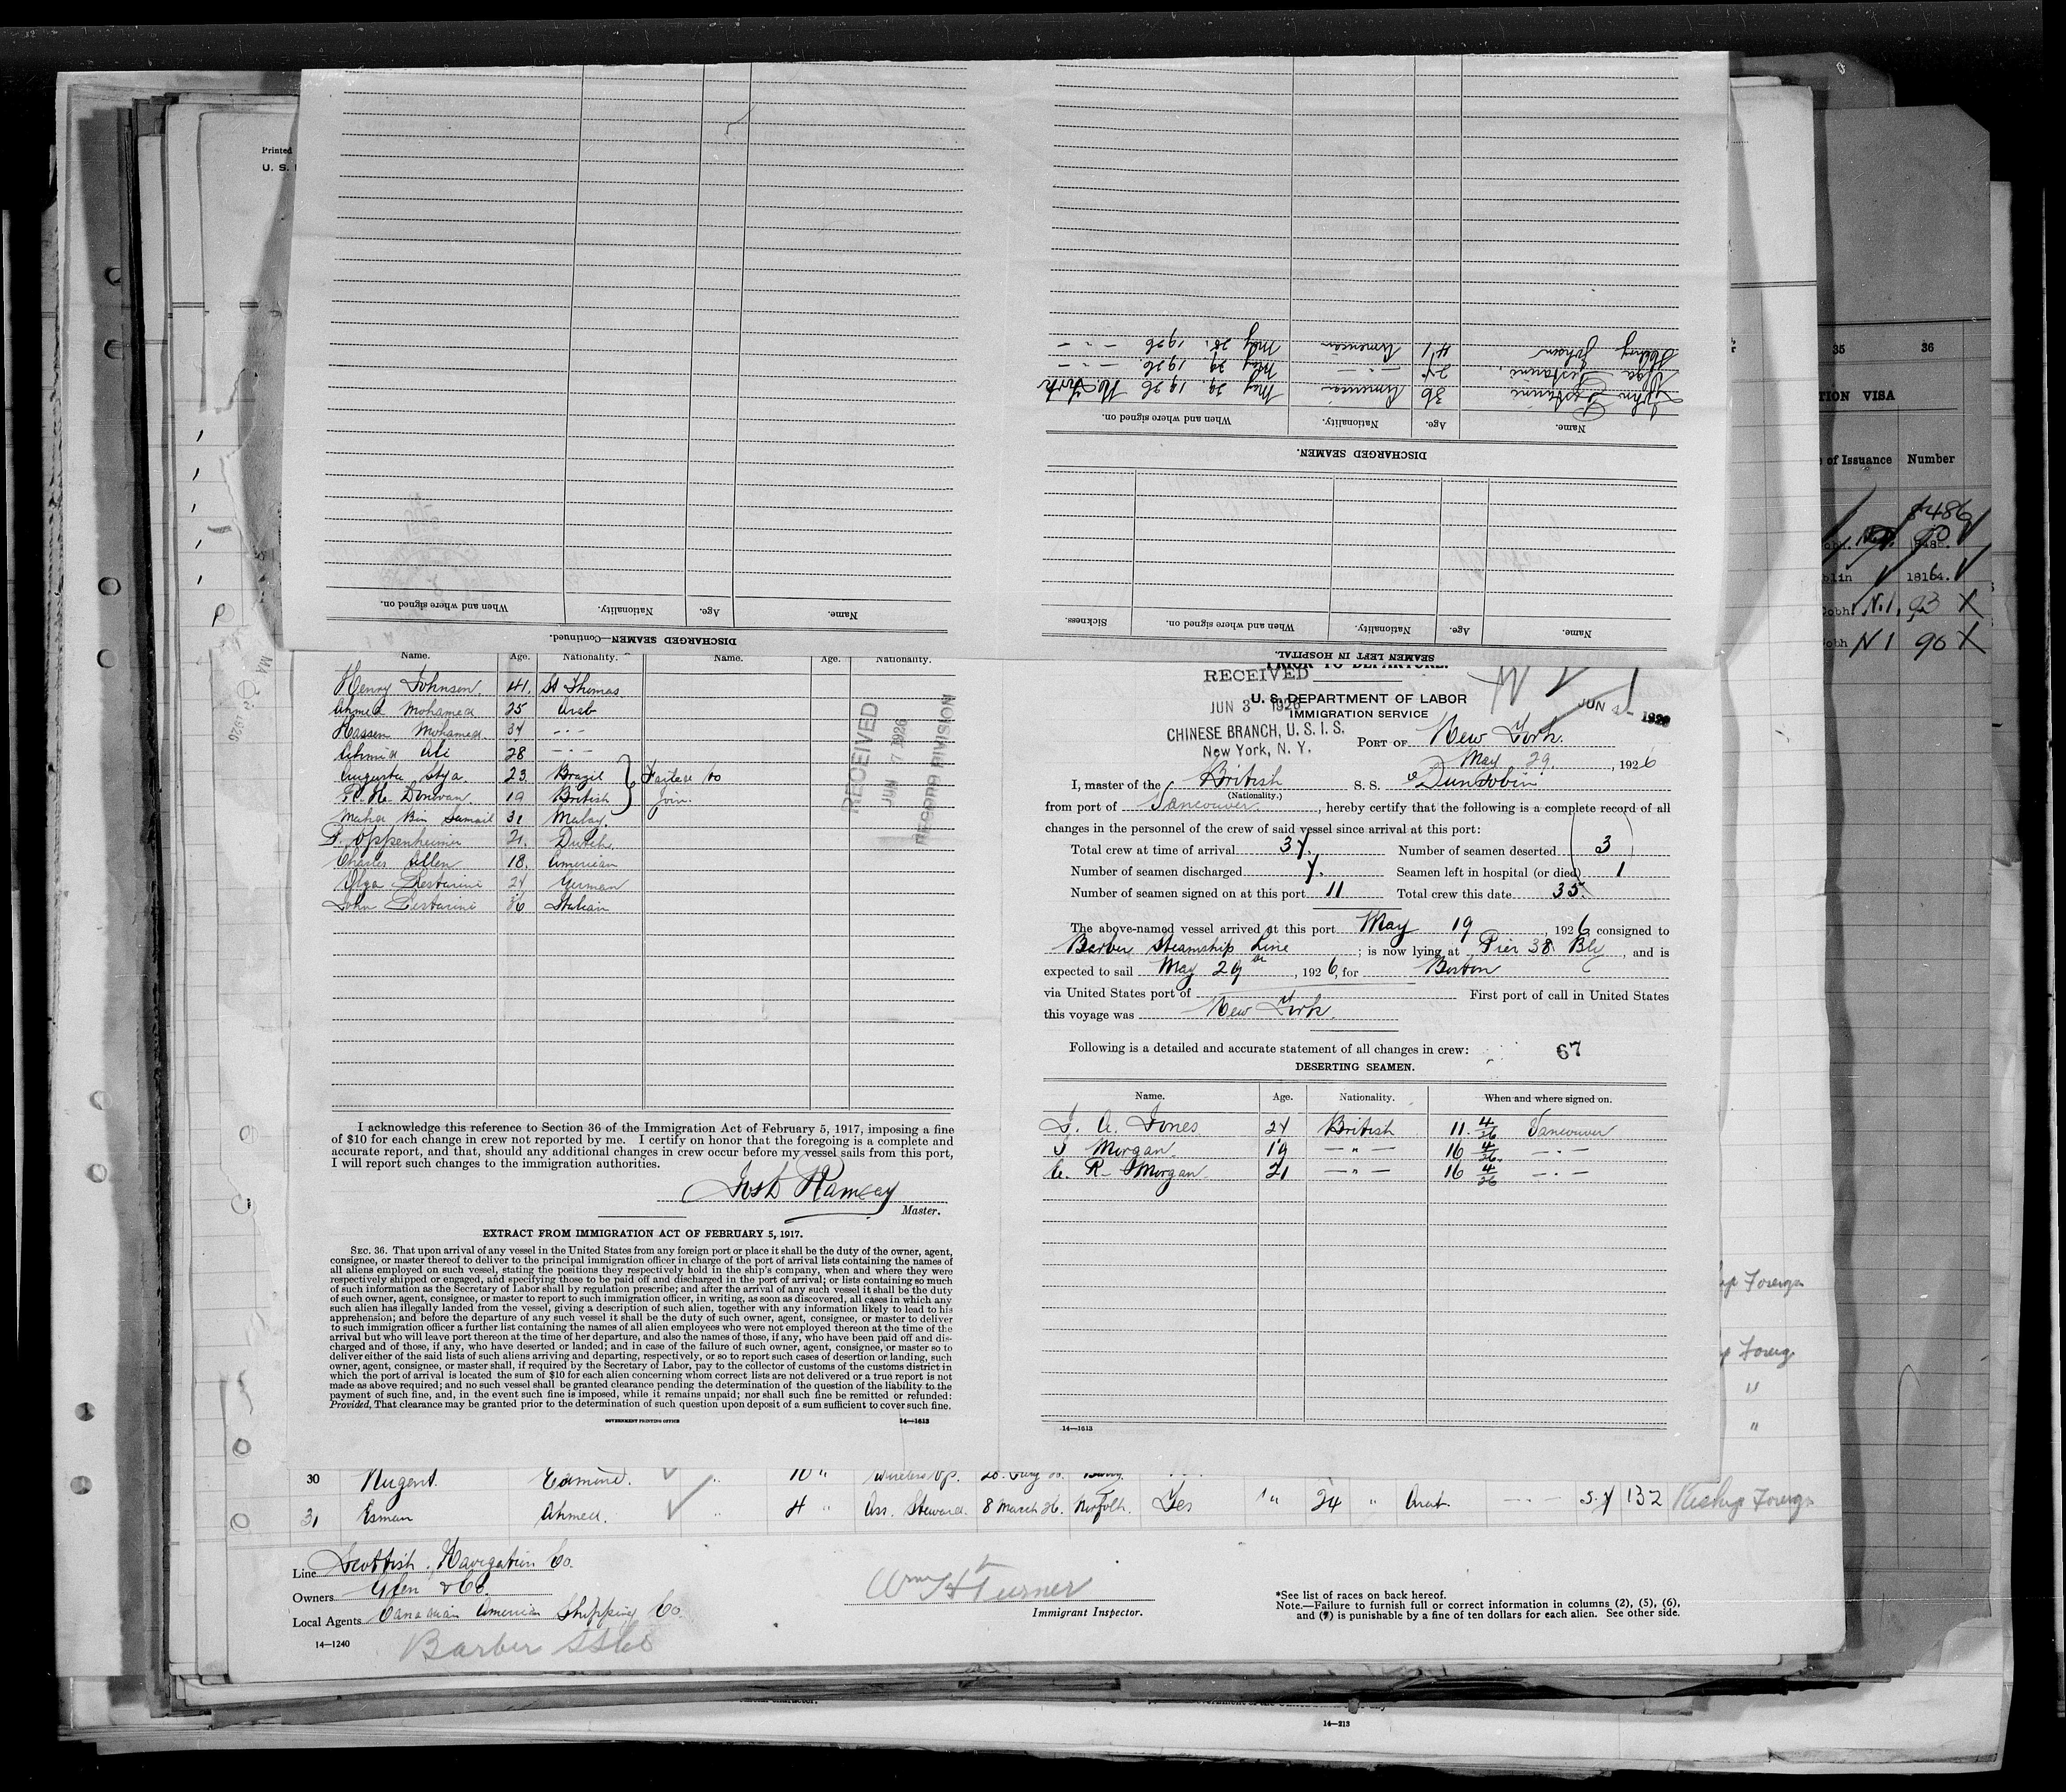 Printed
U. S.
35 36
TION VISA
of Issuance Number
8486
18164.
N.1. 93 X
Cobh N 1 90 X
DISCHARGED SEAMEN—Continued.
Name. Age. Nationality. When and where signed on.
SEAMEN LEFT IN HOSPITAL.
Name. Age. Nationality. When and where signed on. Sickness.
DISCHARGED SEAMEN.
Name. Age. Nationality. When and where signed on.
John Restarini 36 American May 29. 1926 N. York
Olga Restarini. 24 — " — May 29. 1926 — " —
Henry Johnson 41 American May 28. 1926 — " —
Name. Age. Nationality. Name. Age. Nationality.
Henry Johnson. 41. St Thomas
Ahmed Mohamed 25 Arab
Hassen Mohamed 34 - - -
Ahmid Ali 28 - - -
Augusta Stya. 23 Brazil } Failed to
F. H. Donovan. 19 British } join.
Maha Ben Samail 31 Malay.
F. Oppenheimer 21. Dutch
Charles Allen 18. American
Olga Restarini 24 German
John Restarini 36 Italian
RECEIVED
JUN 7 1926
RECORD DIVISION
I acknowledge this reference to Section 36 of the Immigration Act of February 5, 1917, imposing a fine
of $10 for each change in crew not reported by me. I certify on honor that the foregoing is a complete and
accurate report, and that, should any additional changes in crew occur before my vessel sails from this port,
I will report such changes to the immigration authorities.
Josh Ramsay
Master.
EXTRACT FROM IMMIGRATION ACT OF FEBRUARY 5, 1917.
SEC. 36. That upon arrival of any vessel in the United States from any foreign port or place it shall be the duty of the owner, agent,
consignee, or master thereof to deliver to the principal immigration officer in charge of the port of arrival lists containing the names of
all aliens employed on such vessel, stating the positions they respectively hold in the ship's company, when and where they were
respectively shipped or engaged, and specifying those to be paid off and discharged in the port of arrival; or lists containing so much
of such information as the Secretary of Labor shall by regulation prescribe; and after the arrival of any such vessel it shall be the duty
of such owner, agent, consignee, or master to report to such immigration officer, in writing, as soon as discovered, all cases in which any
such alien has illegally landed from the vessel, giving a description of such alien, together with any information likely to lead to his
apprehension; and before the departure of any such vessel it shall be the duty of such owner, agent, consignee, or master to deliver
to such immigration officer a further list containing the names of all alien employees who were not employed thereon at the time of the
arrival but who will leave port thereon at the time of her departure, and also the names of those, if any, who have been paid off and dis-
charged and of those, if any, who have deserted or landed; and in case of the failure of such owner, agent, consignee, or master so to
deliver either of the said lists of such aliens arriving and departing, respectively, or so to report such cases of desertion or landing, such
owner, agent, consignee, or master shall, if required by the Secretary of Labor, pay to the collector of customs of the customs district in
which the port of arrival is located the sum of $10 for each alien concerning whom correct lists are not delivered or a true report is not
made as above required; and no such vessel shall be granted clearance pending the determination of the question of the liability to the
payment of such fine, and, in the event such fine is imposed, while it remains unpaid; nor shall such fine be remitted or refunded:
Provided, That clearance may be granted prior to the determination of such question upon deposit of a sum sufficient to cover such fine.
GOVERNMENT PRINTING OFFICE 14—1613
PRIOR TO DEPARTURE.
RECEIVED
JUN 3 1926
CHINESE BRANCH, U. S. I. S.
New York, N. Y.
U. S. DEPARTMENT OF LABOR
IMMIGRATION SERVICE
JUN 1926
PORT OF New York.
May 29. , 1926
I, master of the British S. S. Dunrobin
(Nationality.)
from port of Vancouver , hereby certify that the following is a complete record of all
changes in the personnel of the crew of said vessel since arrival at this port:
Total crew at time of arrival 34. Number of seamen deserted 3
Number of seamen discharged 4. Seamen left in hospital (or died) 1
Number of seamen signed on at this port 11 Total crew this date 35.
The above-named vessel arrived at this port May 19 , 1926, consigned to
Barber Steamship Line ; is now lying at Pier 38 Bly , and is
expected to sail May 29 , 1926, for Boston
via United States port of First port of call in United States
this voyage was New York.
Following is a detailed and accurate statement of all changes in crew: 67
DESERTING SEAMEN.
Name. Age. Nationality. When and where signed on.
J. A. Jones 24 British 11 4/26 Vancouver
J Morgan 19 — " — 16 4/26. — " —
C. R. Morgan 21 — " — 16 4/26 — " —
14—1613
30 Nugent. Edmund. 10 " Wireless Op.
31 Esman Ahmed. 4 " Ass. Steward. 8 March 26. Norfolk. Yes " 24 " Arab. 5. 4 132 Reship Foreign
Line Scottish Navigation Co.
Owners Glen & Co.
Local Agents Canadian American Shipping Co.
14—1240
Barber SS Co
Wm H Turner
Immigrant Inspector.
*See list of races on back hereof.
Note.—Failure to furnish full or correct information in columns (2), (5), (6),
and (7) is punishable by a fine of ten dollars for each alien. See other side.
14—213